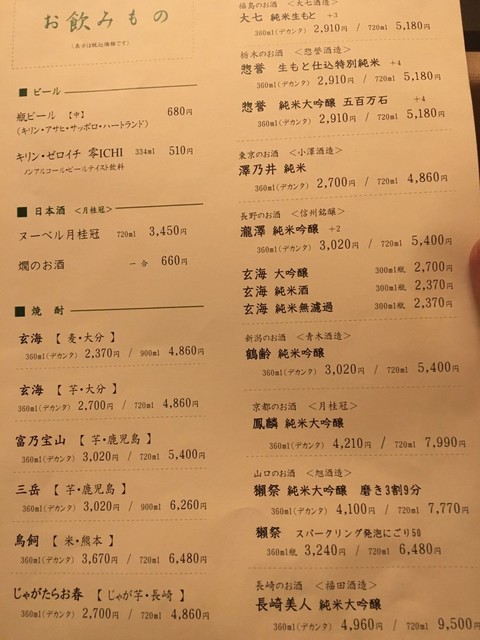 お飲みもの
(表示は税込価格です)
■ ビール
瓶ビール 【中】 680円
(キリン・アサヒ・サッポロ・ハートランド)
キリン・ゼロイチ 零ICHI 334ml 510円
ノンアルコール・ビールテイスト飲料
■ 日本酒 <月桂冠>
ヌーベル月桂冠 720ml 3,450円
燗のお酒 一合 660円
■ 焼 酎
玄海 【 麦・大分 】
360ml(デカンタ) 2,370円 / 900ml 4,860円
玄海 【 芋・大分 】
360ml(デカンタ) 2,700円 / 720ml 4,860円
富乃宝山 【 芋・鹿児島 】
360ml(デカンタ) 3,020円 / 720ml 5,400円
三岳 【 芋・鹿児島 】
360ml(デカンタ) 3,020円 / 900ml 6,260円
鳥飼 【 米・熊本 】
360ml(デカンタ) 3,670円 / 720ml 6,480円
じゃがたらお春 【 じゃが芋・長崎 】
360ml(デカンタ) 2,700円 / 720ml 4,860円
福島のお酒 <大七酒造>
大七 純米生もと +3
360ml(デカンタ) 2,910円 / 720ml 5,180円
栃木のお酒 <惣誉酒造>
惣誉 生もと仕込特別純米 +4
360ml(デカンタ) 2,910円 / 720ml 5,180円
惣誉 純米大吟醸 五百万石 +4
360ml(デカンタ) 2,910円 / 720ml 5,180円
東京のお酒 <小澤酒造>
澤乃井 純米
360ml(デカンタ) 2,700円 / 720ml 4,860円
長野のお酒 <信州銘醸>
瀧澤 純米吟醸 +2
360ml(デカンタ) 3,020円 / 720ml 5,400円
玄海 大吟醸 300ml瓶 2,700円
玄海 純米酒 300ml瓶 2,370円
玄海 純米無濾過 300ml瓶 2,370円
新潟のお酒 <青木酒造>
鶴齢 純米吟醸
360ml(デカンタ) 3,020円 / 720ml 5,400円
京都のお酒 <月桂冠>
鳳麟 純米大吟醸
360ml(デカンタ) 4,210円 / 720ml 7,990円
山口のお酒 <旭酒造>
獺祭 純米大吟醸 磨き3割9分
360ml(デカンタ) 4,100円 / 720ml 7,770円
獺祭 スパークリング発泡にごり50
360ml瓶 3,240円 / 720ml 6,480円
長崎のお酒 <福田酒造>
長崎美人 純米大吟醸
360ml(デカンタ) 4,960円 / 720ml 9,500円